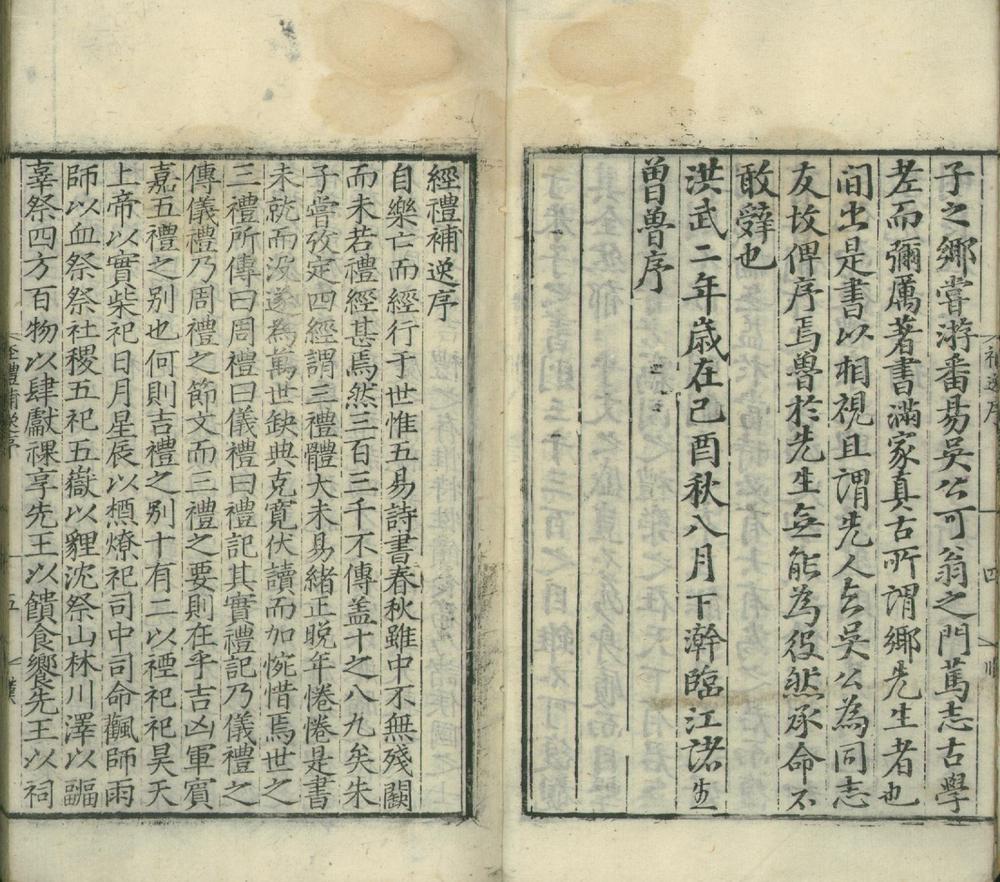 子之鄉嘗游番昜吳公可翁之門篤志古學
老而彌厲著書滿家真古所謂鄉先生者也
間出是書以相視且謂先人與吳公為同志
友故俾序焉魯於先生無能為役然承命不
敢辤也
洪武二年歲在己酉秋八月下澣臨江諸生
曾魯序
經禮補逸序
自樂亡而經行于世惟五易詩書春秋雖中不無殘闕
而未若禮經甚焉然三百三千不傳盖十之八九矣朱
子嘗攷定四經謂三禮體大未易緒正晚年惓惓是書
未就而没遂為萬世缺典克寬伏讀而加惋惜焉世之
三禮所傳曰周禮曰儀禮曰禮記其實禮記乃儀禮之
傳儀禮乃周禮之節文而三禮之要則在乎吉凶軍賓
嘉五禮之别也何則吉禮之别十有二以禋祀祀昊天
上帝以實柴祀日月星辰以槱燎祀司中司命飌師雨
師以血祭祭社稷五祀五嶽以貍沈祭山林川澤以疈
辜祭四方百物以肆獻祼享先王以饋食饗先王以祠